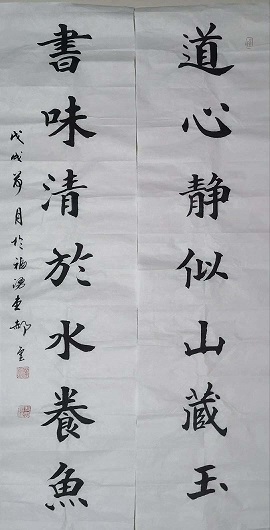 道心静似山藏玉
書味清於水養魚
戊戌荷月於福湧書郝雲